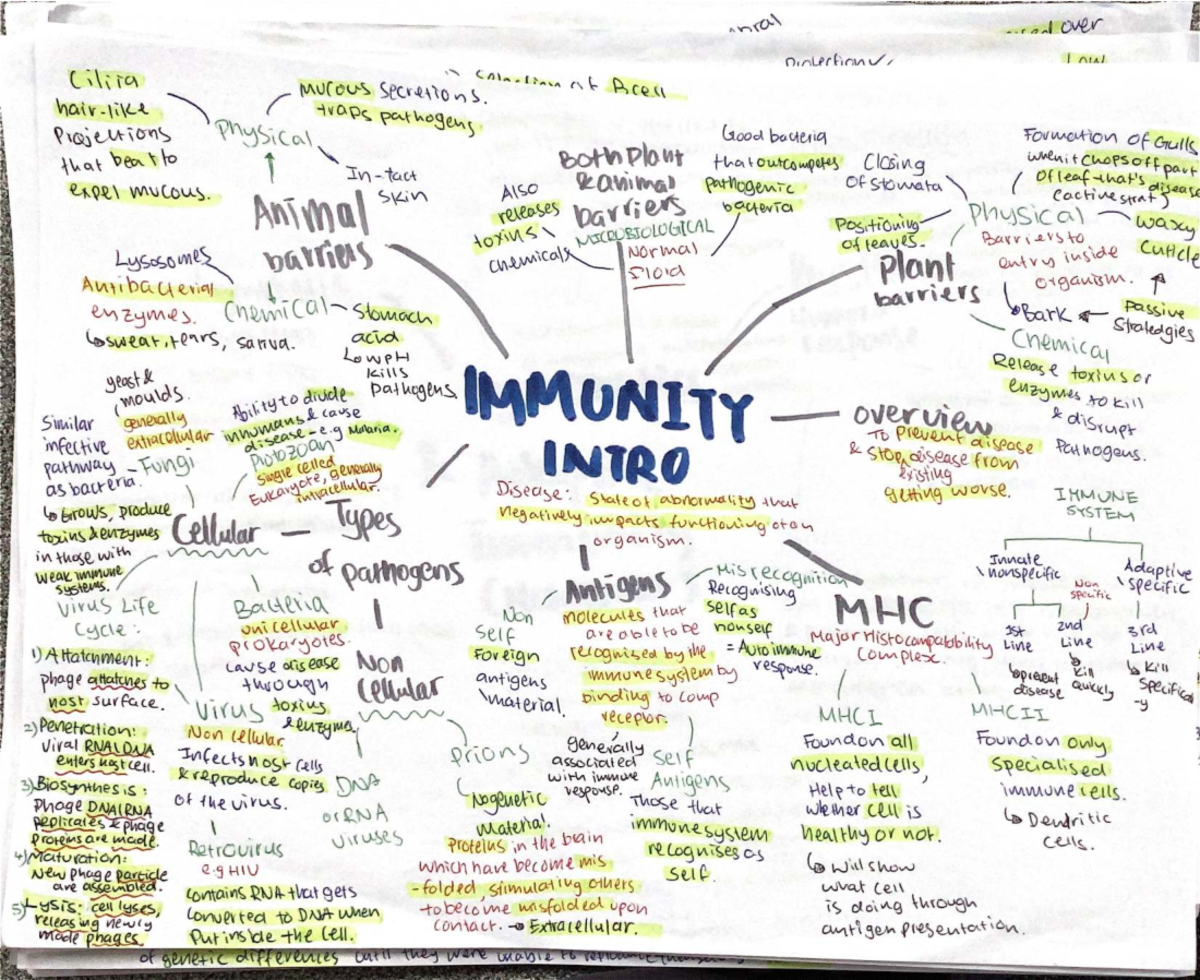 over
Protection
Low
Selection of B cell
Cilira
hair-like
Projections
that beat to
expel mucous.
Physical
Mucous secretions.
traps pathogens.
In-tact
skin
Animal
barriers
Lysosomes
Antibacterial
enzymes.
↳ sweat, tears, saliva.
Chemical
Stomach
acid
Low pH
kills
pathogens
Both Plant
& animal
barriers
MICROBIOLOGICAL
Normal
Floid
Also
releases
toxins
chemicals
Good bacteria
that outcompetes
pathogenic
bacteria
Plant
barriers
Physical
Barriers to
entry inside
organism.
Closing
of stomata
Positioning
of leaves.
Formation of Gulls
when it chops off part
of leaf that's diseas
(active strat)
Waxy
cuticle
Bark
Passive
Stratedgies
Chemical
Release toxins or
enzymes to kill
& disrupt
Pathogens.
IMMUNITY
INTRO
Overview
To Prevent disease
& stop disease from
existing
getting worse.
Disease: State of abnormality that
negatively impacts functioning of an
organism.
IMMUNE
SYSTEM
Innate
nonspecific
Adaptive
specific
Non
specific
1st
Line
prevent
disease
2nd
Line
↳ Kill
quickly
3rd
Line
↳ Kill
Specifical
-y
Types
of pathogens
Cellular
Fungi
yeast &
moulds.
generally
extracellular
Similar
infective
pathway
as bacteria.
↳ Grows, produce
toxins & enzymes
in those with
weak immune
systems.
Protozoan
Single celled
Eukaryote, generally
intracellular.
Ability to divide
in humans & cause
disease - e.g Malaria.
Bacteria
unicellular
prokaryotes.
cause disease
through
toxins
& enzymes
Non
Cellular
Virus
Non cellular.
Infects host cells
& reproduce copies
of the virus.
Retrovirus
e.g HIV
contains RNA that gets
converted to DNA when
Put inside the cell.
Virus Life
Cycle:
1) Attatchment:
phage attatches to
host surface.
2) Penetration:
Viral RNA/DNA
enters host cell.
3) Biosynthesis:
Phage DNA/RNA
replicates & phage
Proteins are made.
4) Maturation:
New phage particle
are assembled.
5) Lysis: cell lyses,
releasing newly
made phages.
DNA
or RNA
Viruses
Prions
No genetic
material.
Proteins in the brain
which have become mis
-folded, stimulating others
to become misfolded upon
contact. → Extracellular.
Antigens
molecules that
are able to be
recognised by the
immune system by
binding to comp
receptor.
generally
associated
with immune
response.
Non
Self
Foreign
antigens
material
Misrecognition
Recognising
self as
nonself
= Autoimmune
response
Self
Antigens
Those that
immune system
recognises as
self.
MHC
Major Histocompatability
Complex
MHCI
Found on all
nucleated cells,
Help to tell
whether cell is
healthy or not.
↳ will show
what cell
is doing through
antigen presentation.
MHCII
Found on only
specialised
immune cells.
↳ Dendritic
cells.
of genetic differences until they were unable to